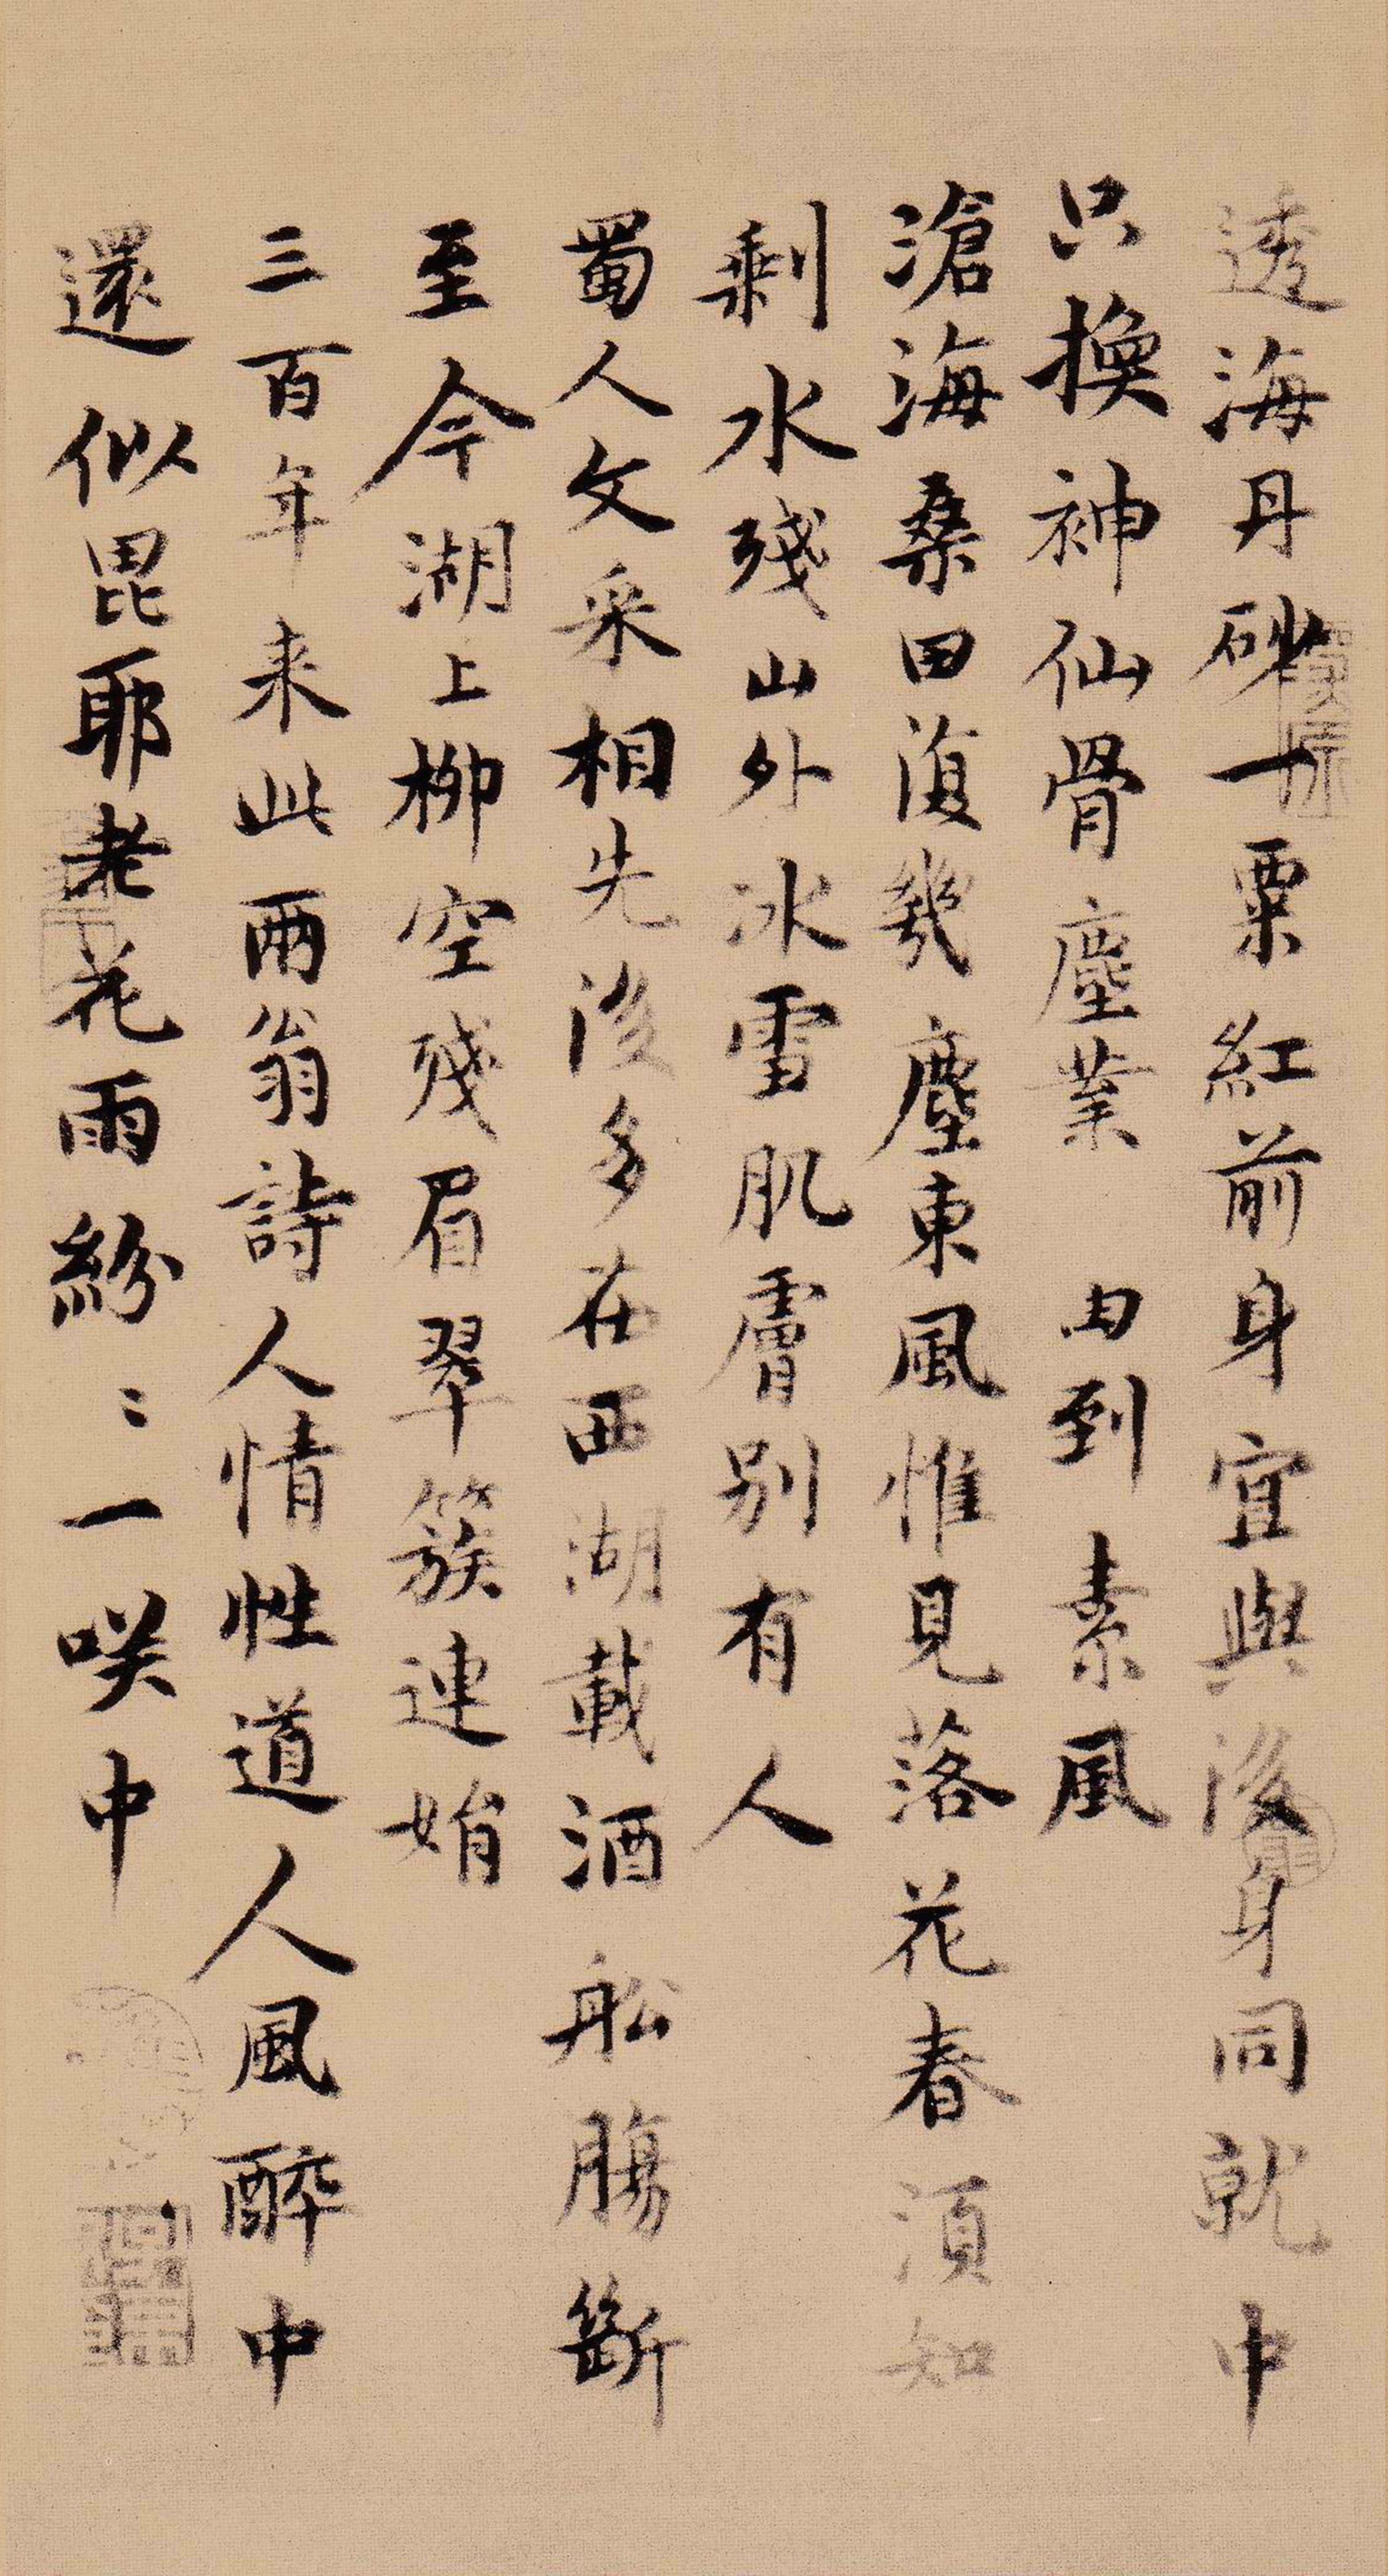 透海丹砂一粟紅前身宜與後身同就中
只換神仙骨塵業 由到素風
滄海桑田復幾塵東風惟見落花春須知
剩水殘山外冰雪肌膚別有人
蜀人文采相先後多在西湖載酒船腸斷
至今湖上柳空殘眉翠簇連娟
三百年来此兩翁詩人情性道人風醉中
還似毘耶老花雨紛〻一咲中